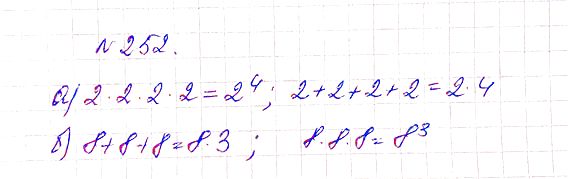 №252.
а) 2·2·2·2=2⁴; 2+2+2+2=2·4
б) 8+8+8=8·3; 8·8·8=8³